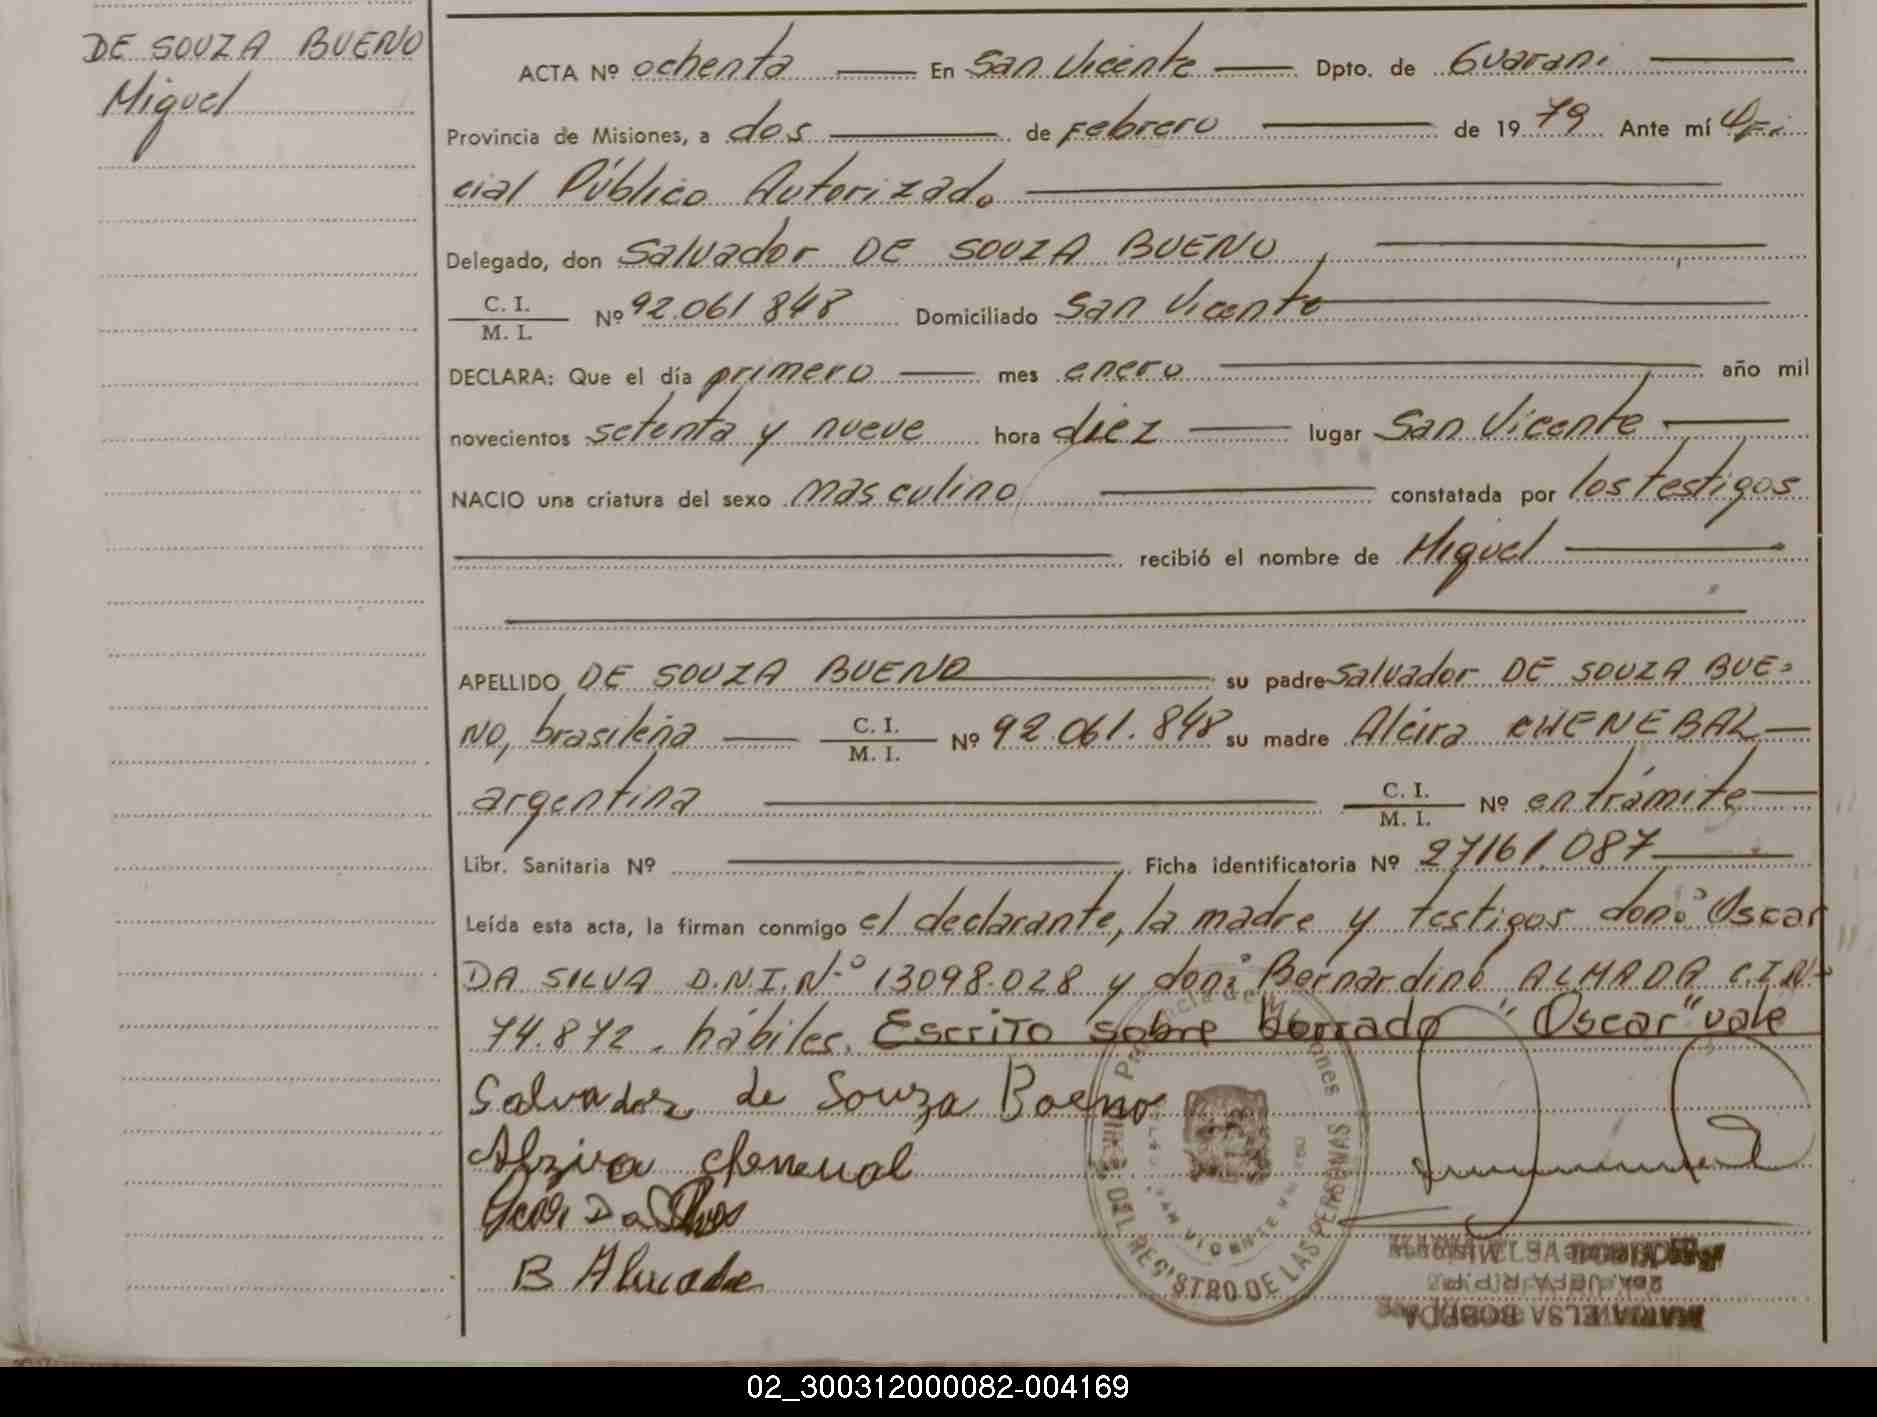 DE SOUZA BUENO
Miguel
ACTA Nº ochenta En San Vicente Dpto. de Guarani
Provincia de Misiones, a dos de Febrero de 1979 Ante mí Ofi-
cial Público Autorizado
Delegado, don Salvador DE SOUZA BUENO
C. I.
M. I.
Nº 92.061 848 Domiciliado San Vicente
DECLARA: Que el día primero mes enero año mil
novecientos setenta y nueve hora diez lugar San Vicente
NACIO una criatura del sexo masculino constatada por los testigos
recibió el nombre de Miguel
APELLIDO DE SOUZA BUENO su padre Salvador DE SOUZA BUE-
NO, brasileña C. I.
M. I. Nº 92.061.848 su madre Alcira CHENEBAL
argentina C. I.
M. I. Nº en trámite
Libr. Sanitaria Nº Ficha identificatoria Nº 27161.087
Leída esta acta, la firman conmigo el declarante, la madre y testigos don: Oscar
DA SILVA D.N.I. Nº 13098.028 y don: Bernardino ALMADA C.I.N-
74.872. hábiles. Escrito sobre borrado "Oscar" vale
Salvador de Souza Boeno
Alzira cheneual
Da Silva
B Almada
Provincia de Misiones
DEL REGISTRO DE LAS PERSONAS
SAN VICENTE
MARIA ELSA BOBEDA
02_300312000082-004169